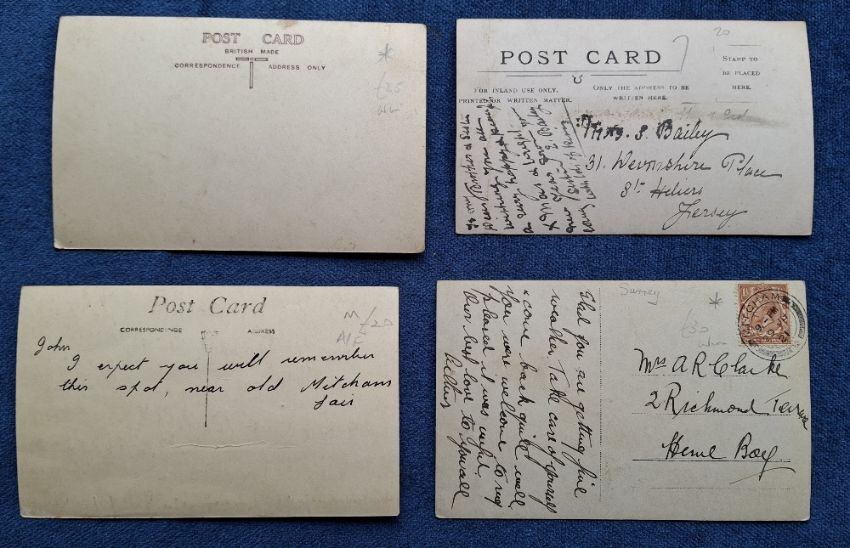 POST CARD
BRITISH MADE
CORRESPONDENCE
ADDRESS ONLY
*
£25
POST CARD
20
FOR INLAND USE ONLY.
PRINTED OR WRITTEN MATTER.
ONLY THE ADDRESS TO BE
WRITTEN HERE.
STAMP TO
BE PLACED
HERE.
To my Brother & Sister
wishing you all
a very happy
Xmas & bright
year
Miss S. Bailey
31. Devonshire Place
St Heliers
Jersey
Post Card
CORRESPONDENCE
ADDRESS
M £20
A/F
John
I expect you will remember
this spot, near old Mitcham
fair
Surrey
*
£30
Glad you are getting fine
weather Take care of yourself
& come back quite well
You were welcome to rug
pleased it was useful
Our best love to you all
MITCHAM
Mrs A R Clarke
2 Richmond Terrace
Herne Bay